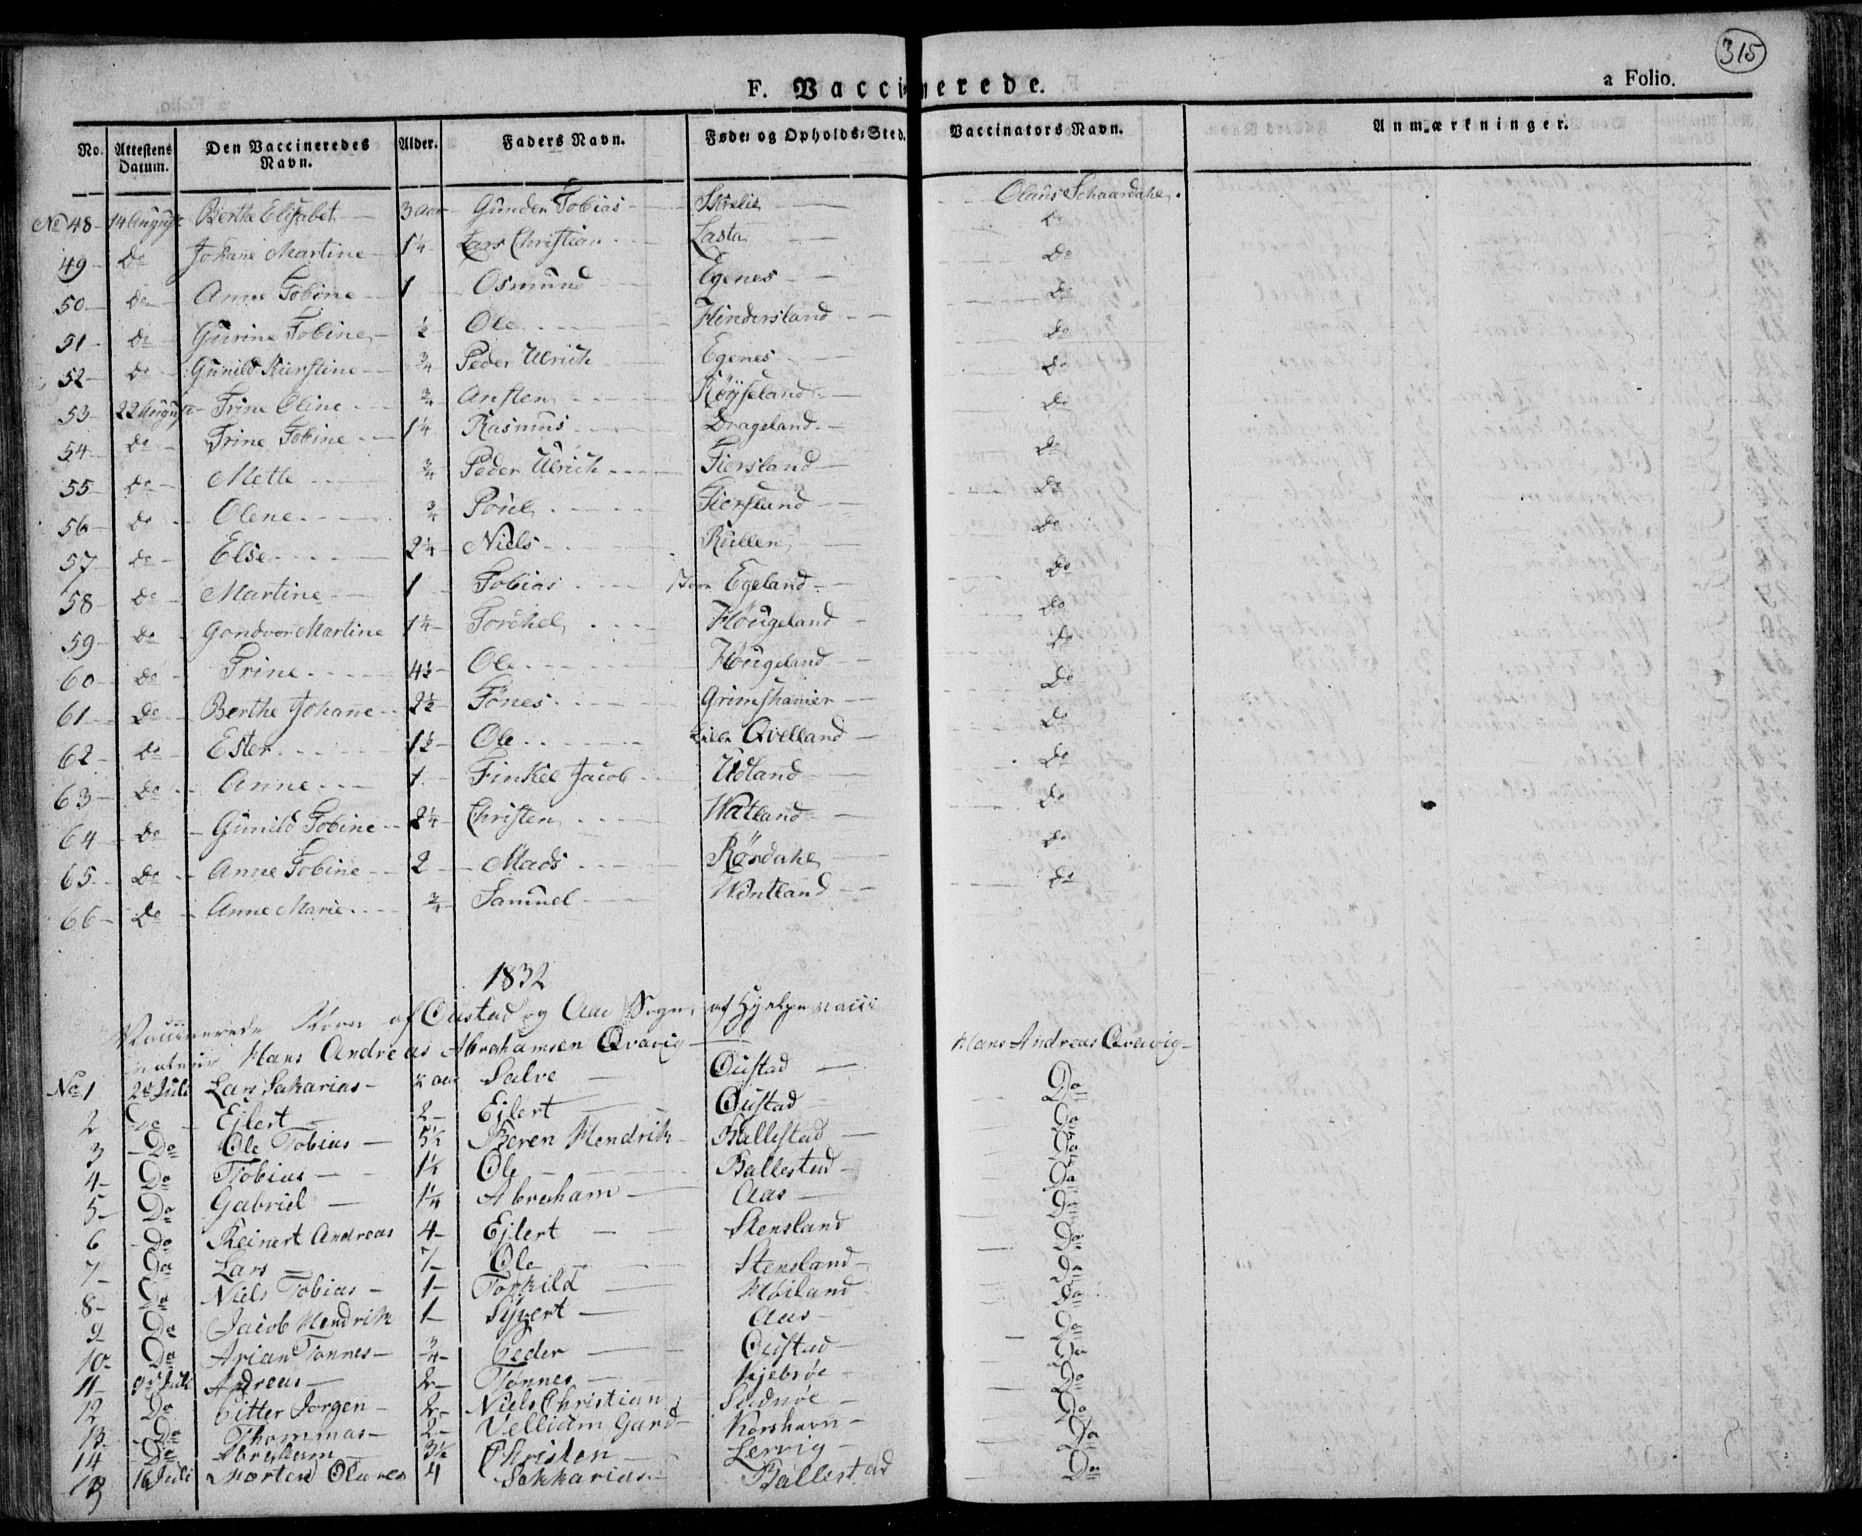 315
F. Vaccinerede.
a Folio.
No. | Attestens Datum. | Den Vaccineredes Navn. | Alder. | Faders Navn. | Føde- og Opholds-Sted. | Vaccinators Navn. | Anmærkninger.
No 48 | 14 August | Berthe Elisabet | 3 Aar | Gunder Tobias | | Olaus Schaardahl.
49 | Do | Johane Martine | 1¼ | Lars Christian | Lasta | Do
50 | Do | Anne Tobine | 1 | Osmund | Egenes | Do
51 | Do | Gurine Tobine | ½ | Ole | Hindersland | Do
52 | Do | Gunild Kirstine | ¾ | Peder Ulrich | Egenes | Do
53 | 22 August | Trine Oline | ¾ | Ansten | Röyseland | Do
54 | Do | Trine Tobine | 1¼ | Rasmus | Drageland | Do
55 | Do | Mette | ¾ | Peder Ulrich | Fiersland | Do
56 | Do | Olene | ¾ | Poul | Fiersland | Do
57 | Do | Else | 2¼ | Niels | Kullen | Do
58 | Do | Martine | 1 | Tobias | Store Egeland | Do
59 | Do | Gondvor Martine | 1¼ | Torchel | Höugeland | Do
60 | Do | Trine | 4½ | Ole | Höugeland | Do
61 | Do | Berthe Johane | 2½ | Tönes | Grimshamer | Do
62 | Do | Ester | 1½ | Ole | Lille Qvelland | Do
63 | Do | Anne | 1 | Finkel Jacob | Udland | Do
64 | Do | Gunild Tobine | 2¼ | Christen | Watland | Do
65 | Do | Anne Tobine | 2 | Mads | Rösdahl | Do
66 | Do | Anne Marie | ¾ | Samuel | Wintland | Do
1832
Vaccinerede Börn af Oustad og Aas Sogne, af Hjelpevacci
nateur Hans Andreas Abrahamsen Qvavig | Hans Andreas Qvavig
No 1 | 2de Juli | Lars Sakarias | Aar | Salve | Oustad | Do
2 | Do | Ejlert | 2 | Ejlert | Oustad | Do
3 | Do | Ole Tobias | 5½ | Beren Hendrik | Ballestad | Do
4 | Do | Tobias | 1½ | Ole | Ballestad | Do
5 | Do | Gabriel | 1¼ | Abraham | Aas | Do
6 | Do | Reinert Andreas | 4 | Ejlert | Stensland | Do
7 | Do | Lars | 7 | Ole | Stensland | Do
8 | Do | Niels Tobias | 1 | Torkild | Möiland | Do
9 | Do | Jacob Hendrik | 1 | Sivert | Aas | Do
10 | Do | Arian Tönnes | ¾ | Peder | Oustad | Do
11 | 9de Juli | Andreas | 2 | Tönnes | Kjebsöe | Do
12 | Do | Pitter Jörgen | 2 | Niels Christian | | Do
13 | Do | Thommas | 2 | Velliam Gard | Korshavn | Do
14 | Do | Abraham | 3½ | Christen | Lervig | Do
15 | 16 Juli | Morten Olaves | 4 | Sakkarias | Ballestad